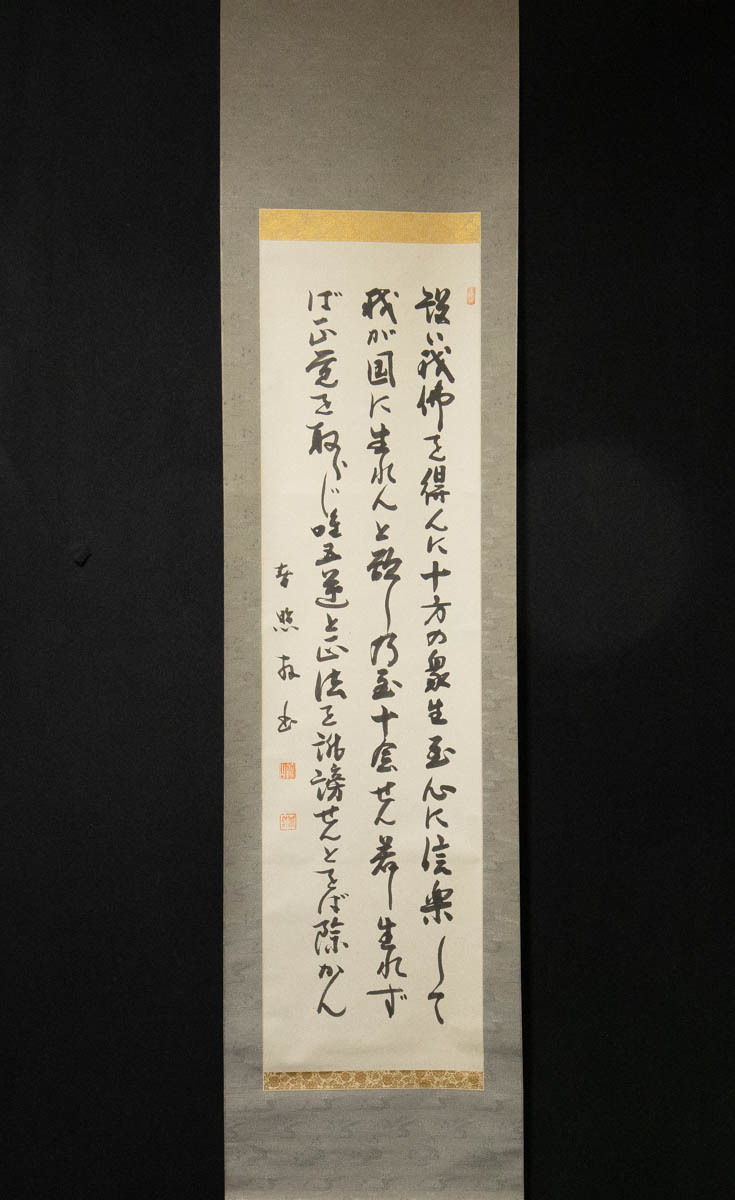 設い我佛を得んに十方の衆生至心に信楽して
我が国に生れんと欲し乃至十念せん若し生れず
ば正覚を取らじ唯五逆と正法を誹謗せんとをば除かん
照